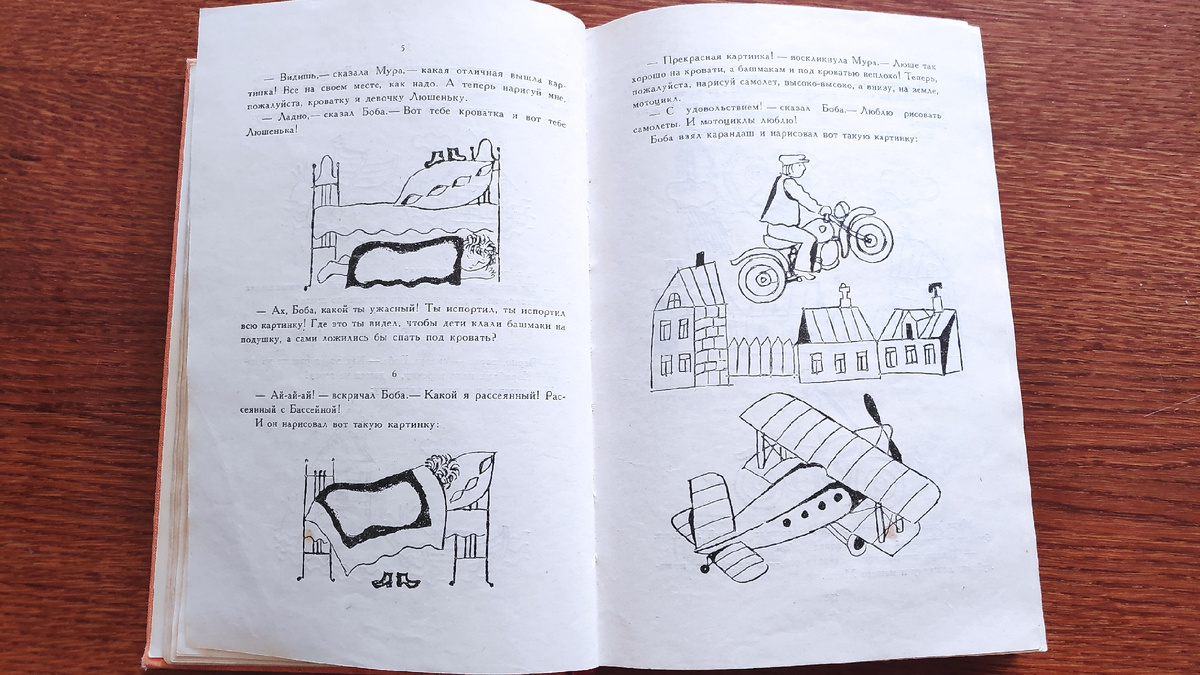 5
— Видишь,— сказала Мура,— какая отличная вышла кар-
тинка! Все на своем месте, как надо. А теперь нарисуй мне,
пожалуйста, кроватку и девочку Люшеньку.
— Ладно,— сказал Боба.— Вот тебе кроватка и вот тебе
Люшенька!
— Ах, Боба, какой ты ужасный! Ты испортил, ты испортил
всю картинку! Где это ты видел, чтобы дети клали башмаки на
подушку, а сами ложились бы спать под кровать?
6
— Ай-ай-ай! — вскричал Боба.— Какой я рассеянный! Рас-
сеянный с Бассейной!
И он нарисовал вот такую картинку:
— Прекрасная картинка! — воскликнула Мура.— Люше так
хорошо на кровати, а башмакам и под кроватью неплохо! Теперь,
пожалуйста, нарисуй самолет, высоко-высоко, а внизу, на земле,
мотоцикл.
— С удовольствием! — сказал Боба.— Люблю рисовать
самолеты. И мотоциклы люблю!
Боба взял карандаш и нарисовал вот такую картинку: